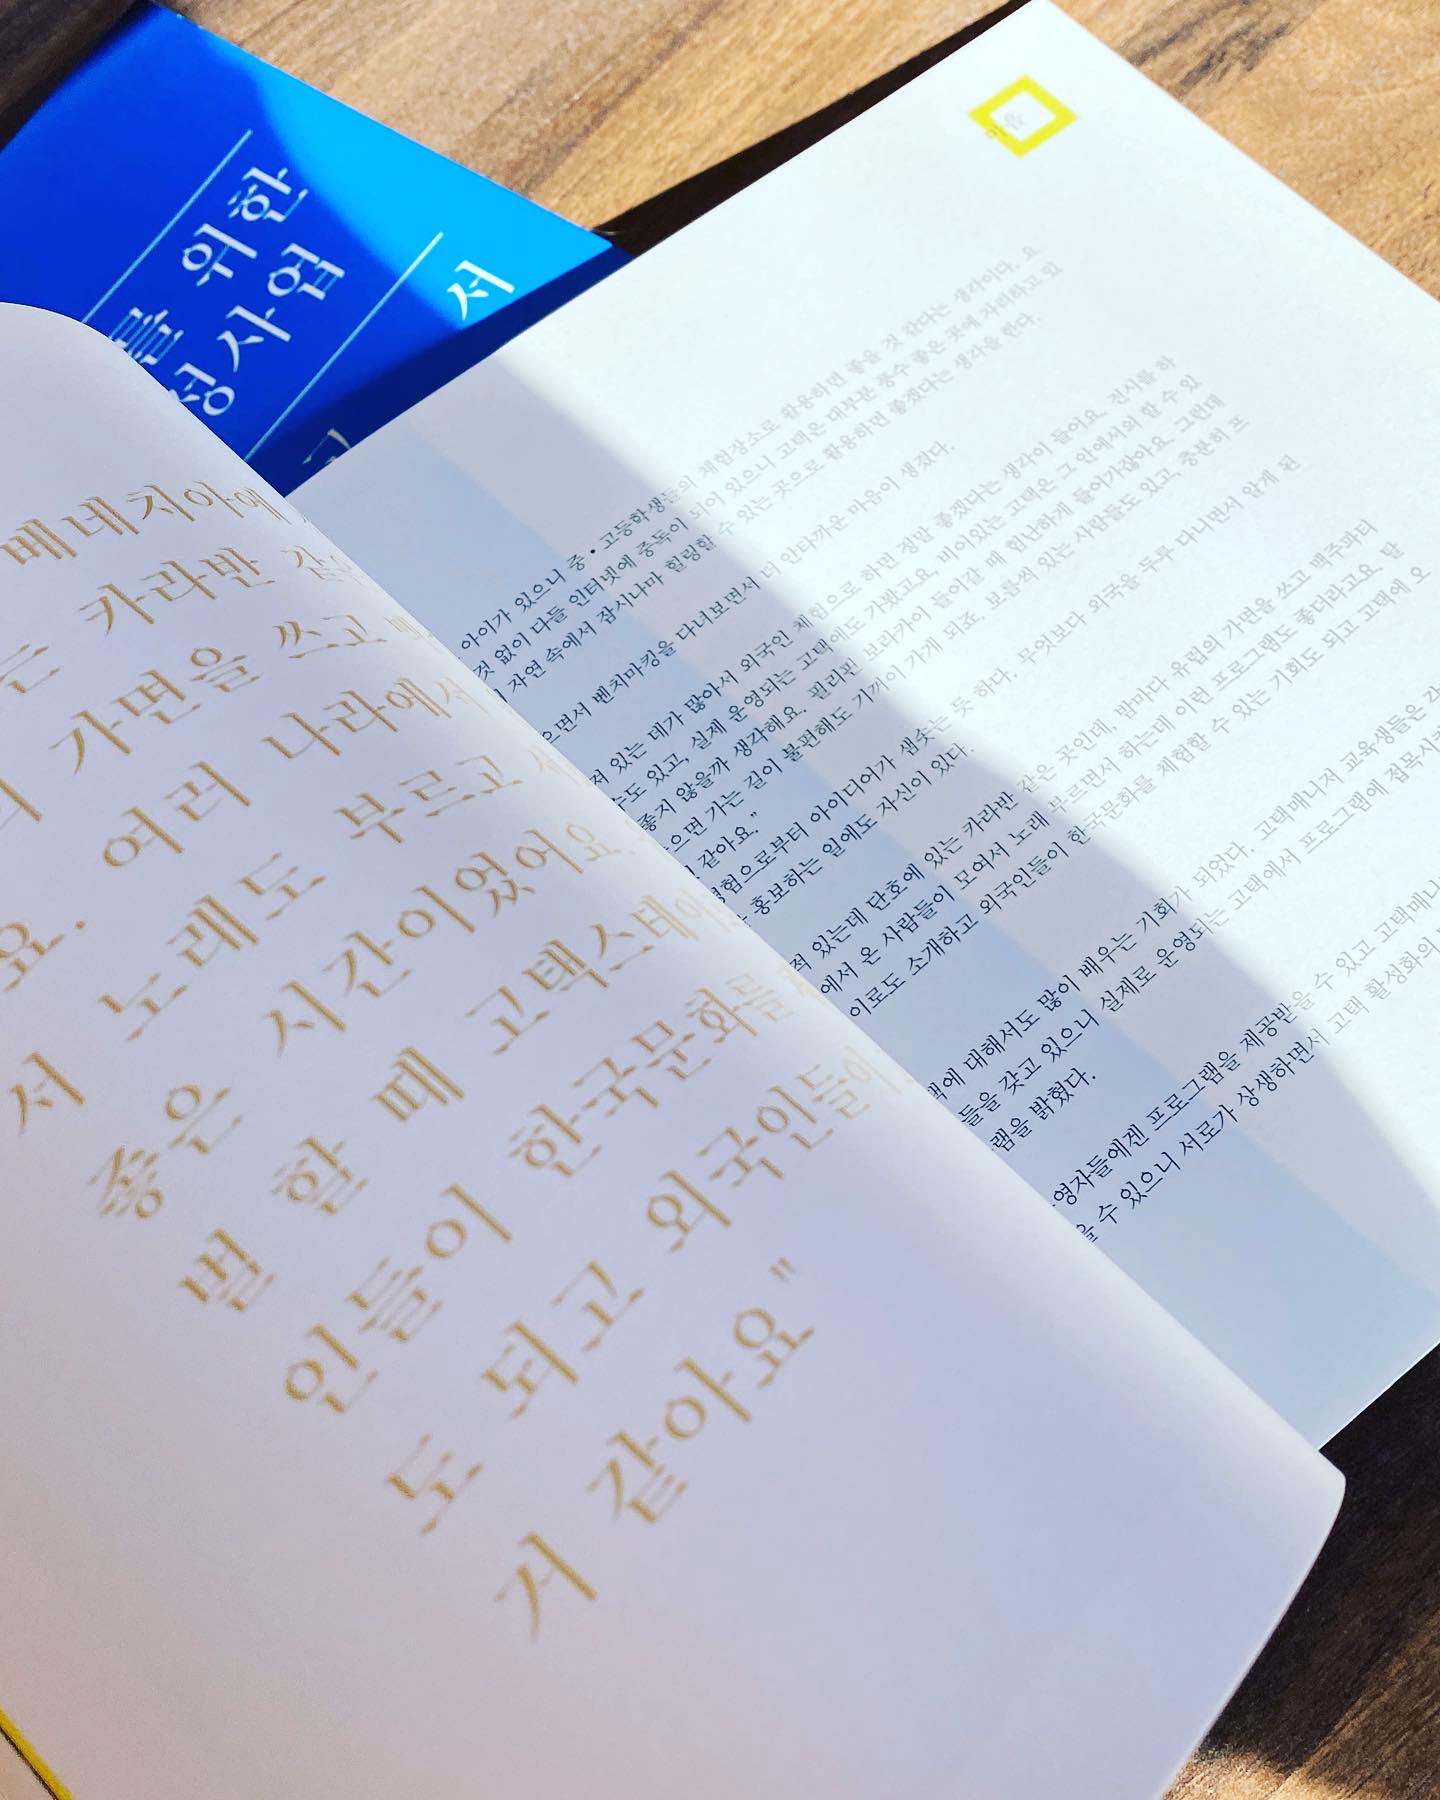 를 위한
성사업
서
이음
베네치아에
는 카라반 같
의 가면을 쓰고
요. 여러 나라에서
서 노래도 부르고
좋은 시간이었어요.
벌 할 때 고택스테이
인들이 한국문화를
도 되고 외국인들에
거 같아요"
아이가 있으니 중•고등학생들의 체험장소로 활용하면 좋을 것 같다는 생각이다. 요
것 없이 다들 인터넷에 중독이 되어 있으니 고택은 대부분 풍수 좋은 곳에 자리하고 있
자연 속에서 잠시나마 힐링할 수 있는 곳으로 활용하면 좋겠다는 생각을 한다.
으면서 벤치마킹을 다녀보면서 더 안타까운 마음이 생겼다.
져 있는 데가 많아서 외국인 체험으로 하면 정말 좋겠다는 생각이 들어요. 전시를 하
수도 있고, 실제 운영되는 고택에도 가봤고요, 비어있는 고택은 그 안에서의 할 수 있
좋지 않을까 생각해요. 필리핀 보라카이 들어갈 때 험난하게 들어가잖아요. 그런데
으면 가는 길이 불편해도 기꺼이 가게 되죠. 보름씩 있는 사람들도 있고, 충분히 프
같아요."
경험으로부터 아이디어가 샘솟는 듯 하다. 무엇보다 외국을 두루 다니면서 알게 된
홍보하는 일에도 자신이 있다.
적 있는데 단호에 있는 카라반 같은 곳인데, 밤마다 유럽의 가면을 쓰고 맥주파티
에서 온 사람들이 모여서 노래 부르면서 하는데 이런 프로그램도 좋더라고요. 탈
이로도 소개하고 외국인들이 한국문화를 체험할 수 있는 기회도 되고 고택에 오
택에 대해서도 많이 배우는 기회가 되었다. 고택매니저 교육생들은 각
들을 갖고 있으니 실제로 운영되는 고택에서 프로그램에 접목시
램을 밝혔다.
영자들에겐 프로그램을 제공받을 수 있고 고택매니
을 수 있으니 서로가 상생하면서 고택 활성화의